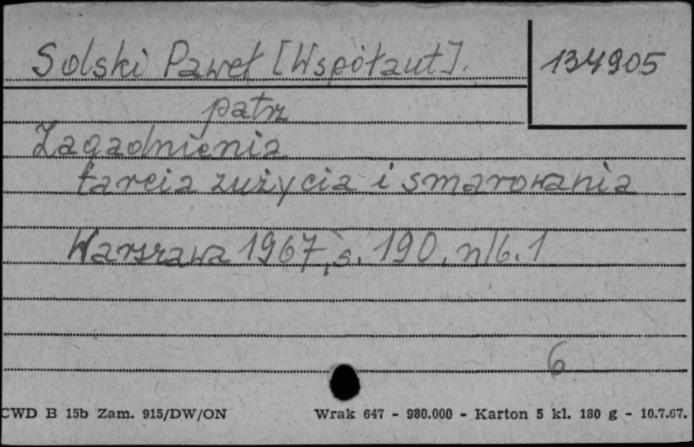 Solski Paweł [Współaut]. 134905
patrz
Zagadnienia
tarcia zużycia i smarowania
Warszawa 1967, s. 190, nlb. 1
6
CWD B 15b Zam. 915/DW/ON Wrak 647 - 980.000 - Karton 5 kl. 180 g - 10.7.67.